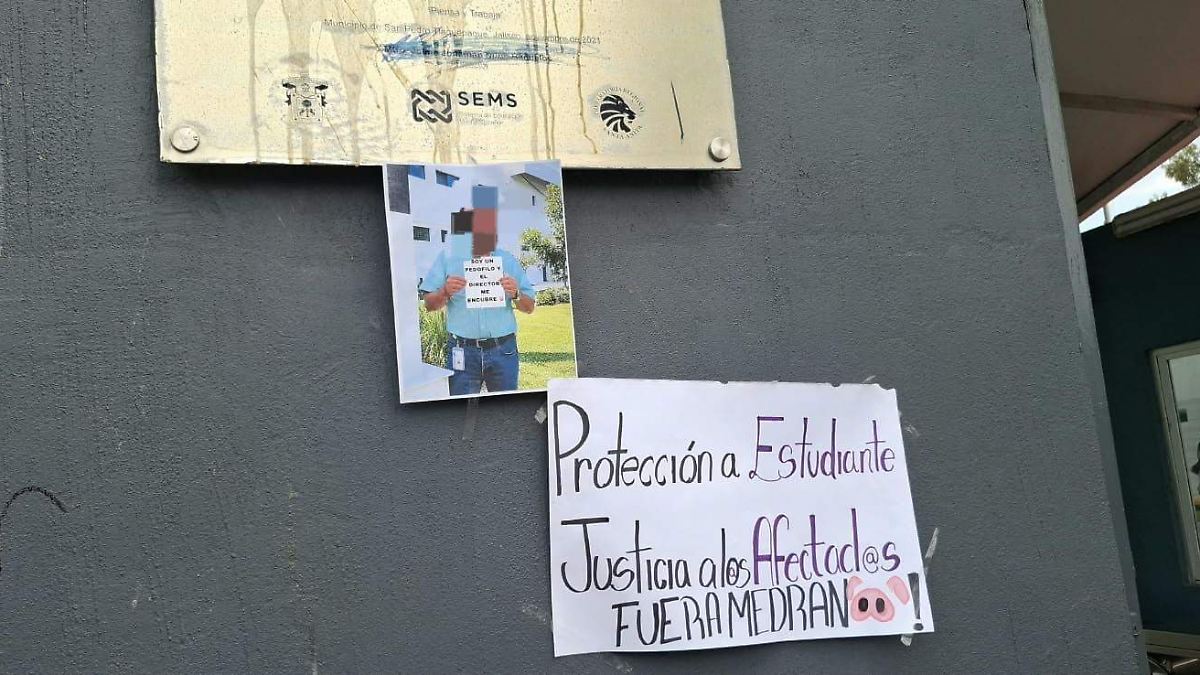 "Piensa y Trabaja"
Municipio de San Pedro Tlaquepaque, Jalisco, de 2021
SEMS
SOY UN
PEDOFILO Y
EL
DIRECTOR
ME
ENCUBRE
Protección a Estudiante
Justicia a l@s Afectad@s
FUERA MEDRANO!